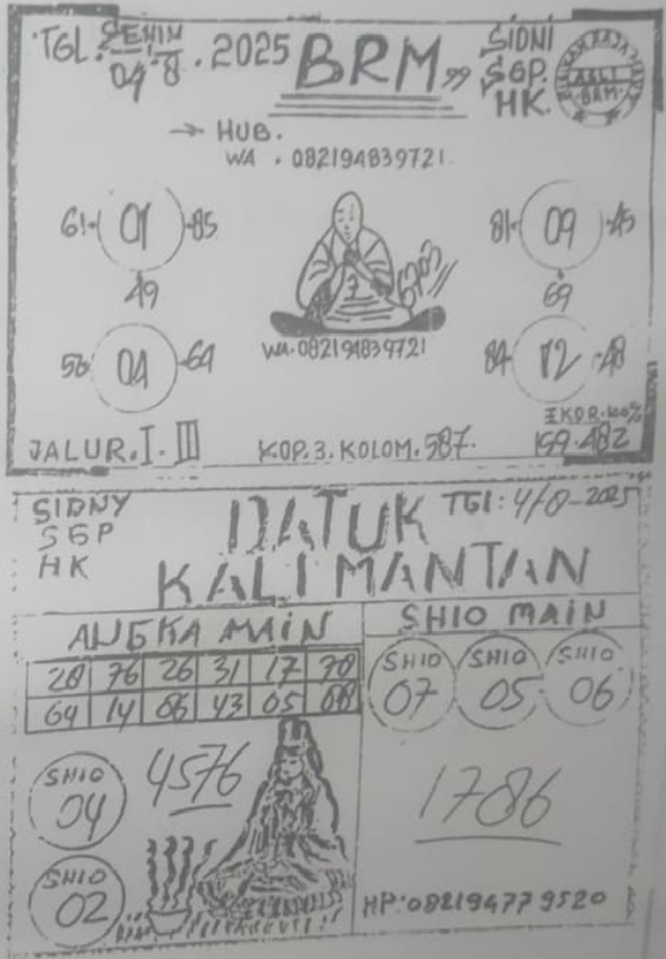 TGL. SENIN 04-8.2025
BRM
SIDNI
SGP.
HK.
HUB.
WA . 082194839721
61 01 85
49
81 09 45
69
6703
WA.082194839721
56 04 64
84 12 48
JALUR.I.III
KOP.3.KOLOM.587.
EKOR.100%
159.482
SIDNY
SGP
HK
DATUK
KALIMANTAN
TGl: 4/8-2025
ANGKA MAIN
SHIO MAIN
28 76 26 31 17 70
64 14 86 43 05 08
SHIO 07
SHIO 05
SHIO 06
SHIO 04
4576
SHIO 02
1786
HP:082194779520